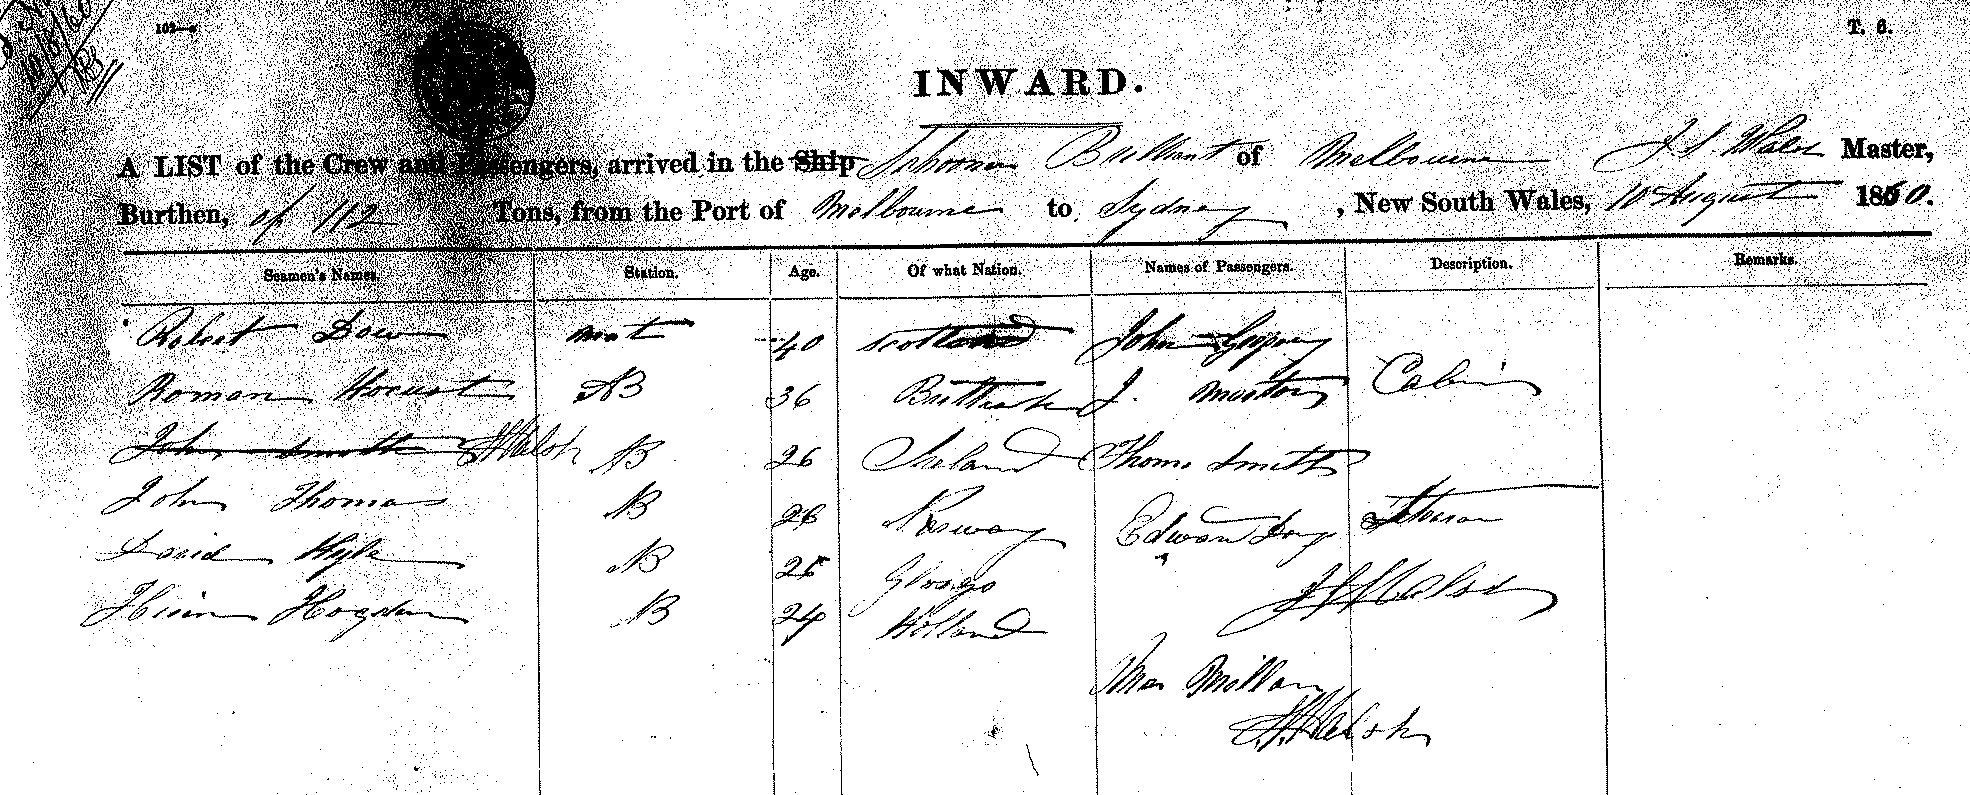 102—
T. 6.
INWARD.
A LIST of the Crew and Passengers, arrived in the Ship Schooner Brilliant of Melbourne J S Walsh Master,
Burthen, of 112 Tons, from the Port of Melbourne to Sydney, New South Wales, 10 August 1860.
Seamen's Names. Station. Age. Of what Nation. Names of Passengers. Description. Remarks.
Robert Dow mat 40 Scotland John
Roman AB 36 J. Morton Cabin
John Smith JS Walsh AB 26 Ireland Thoms Smith
John Thomas AB 26 Norway Edward
David Hyle AB 25
AB 24 Holland JS Walsh
Millan
JS Walsh